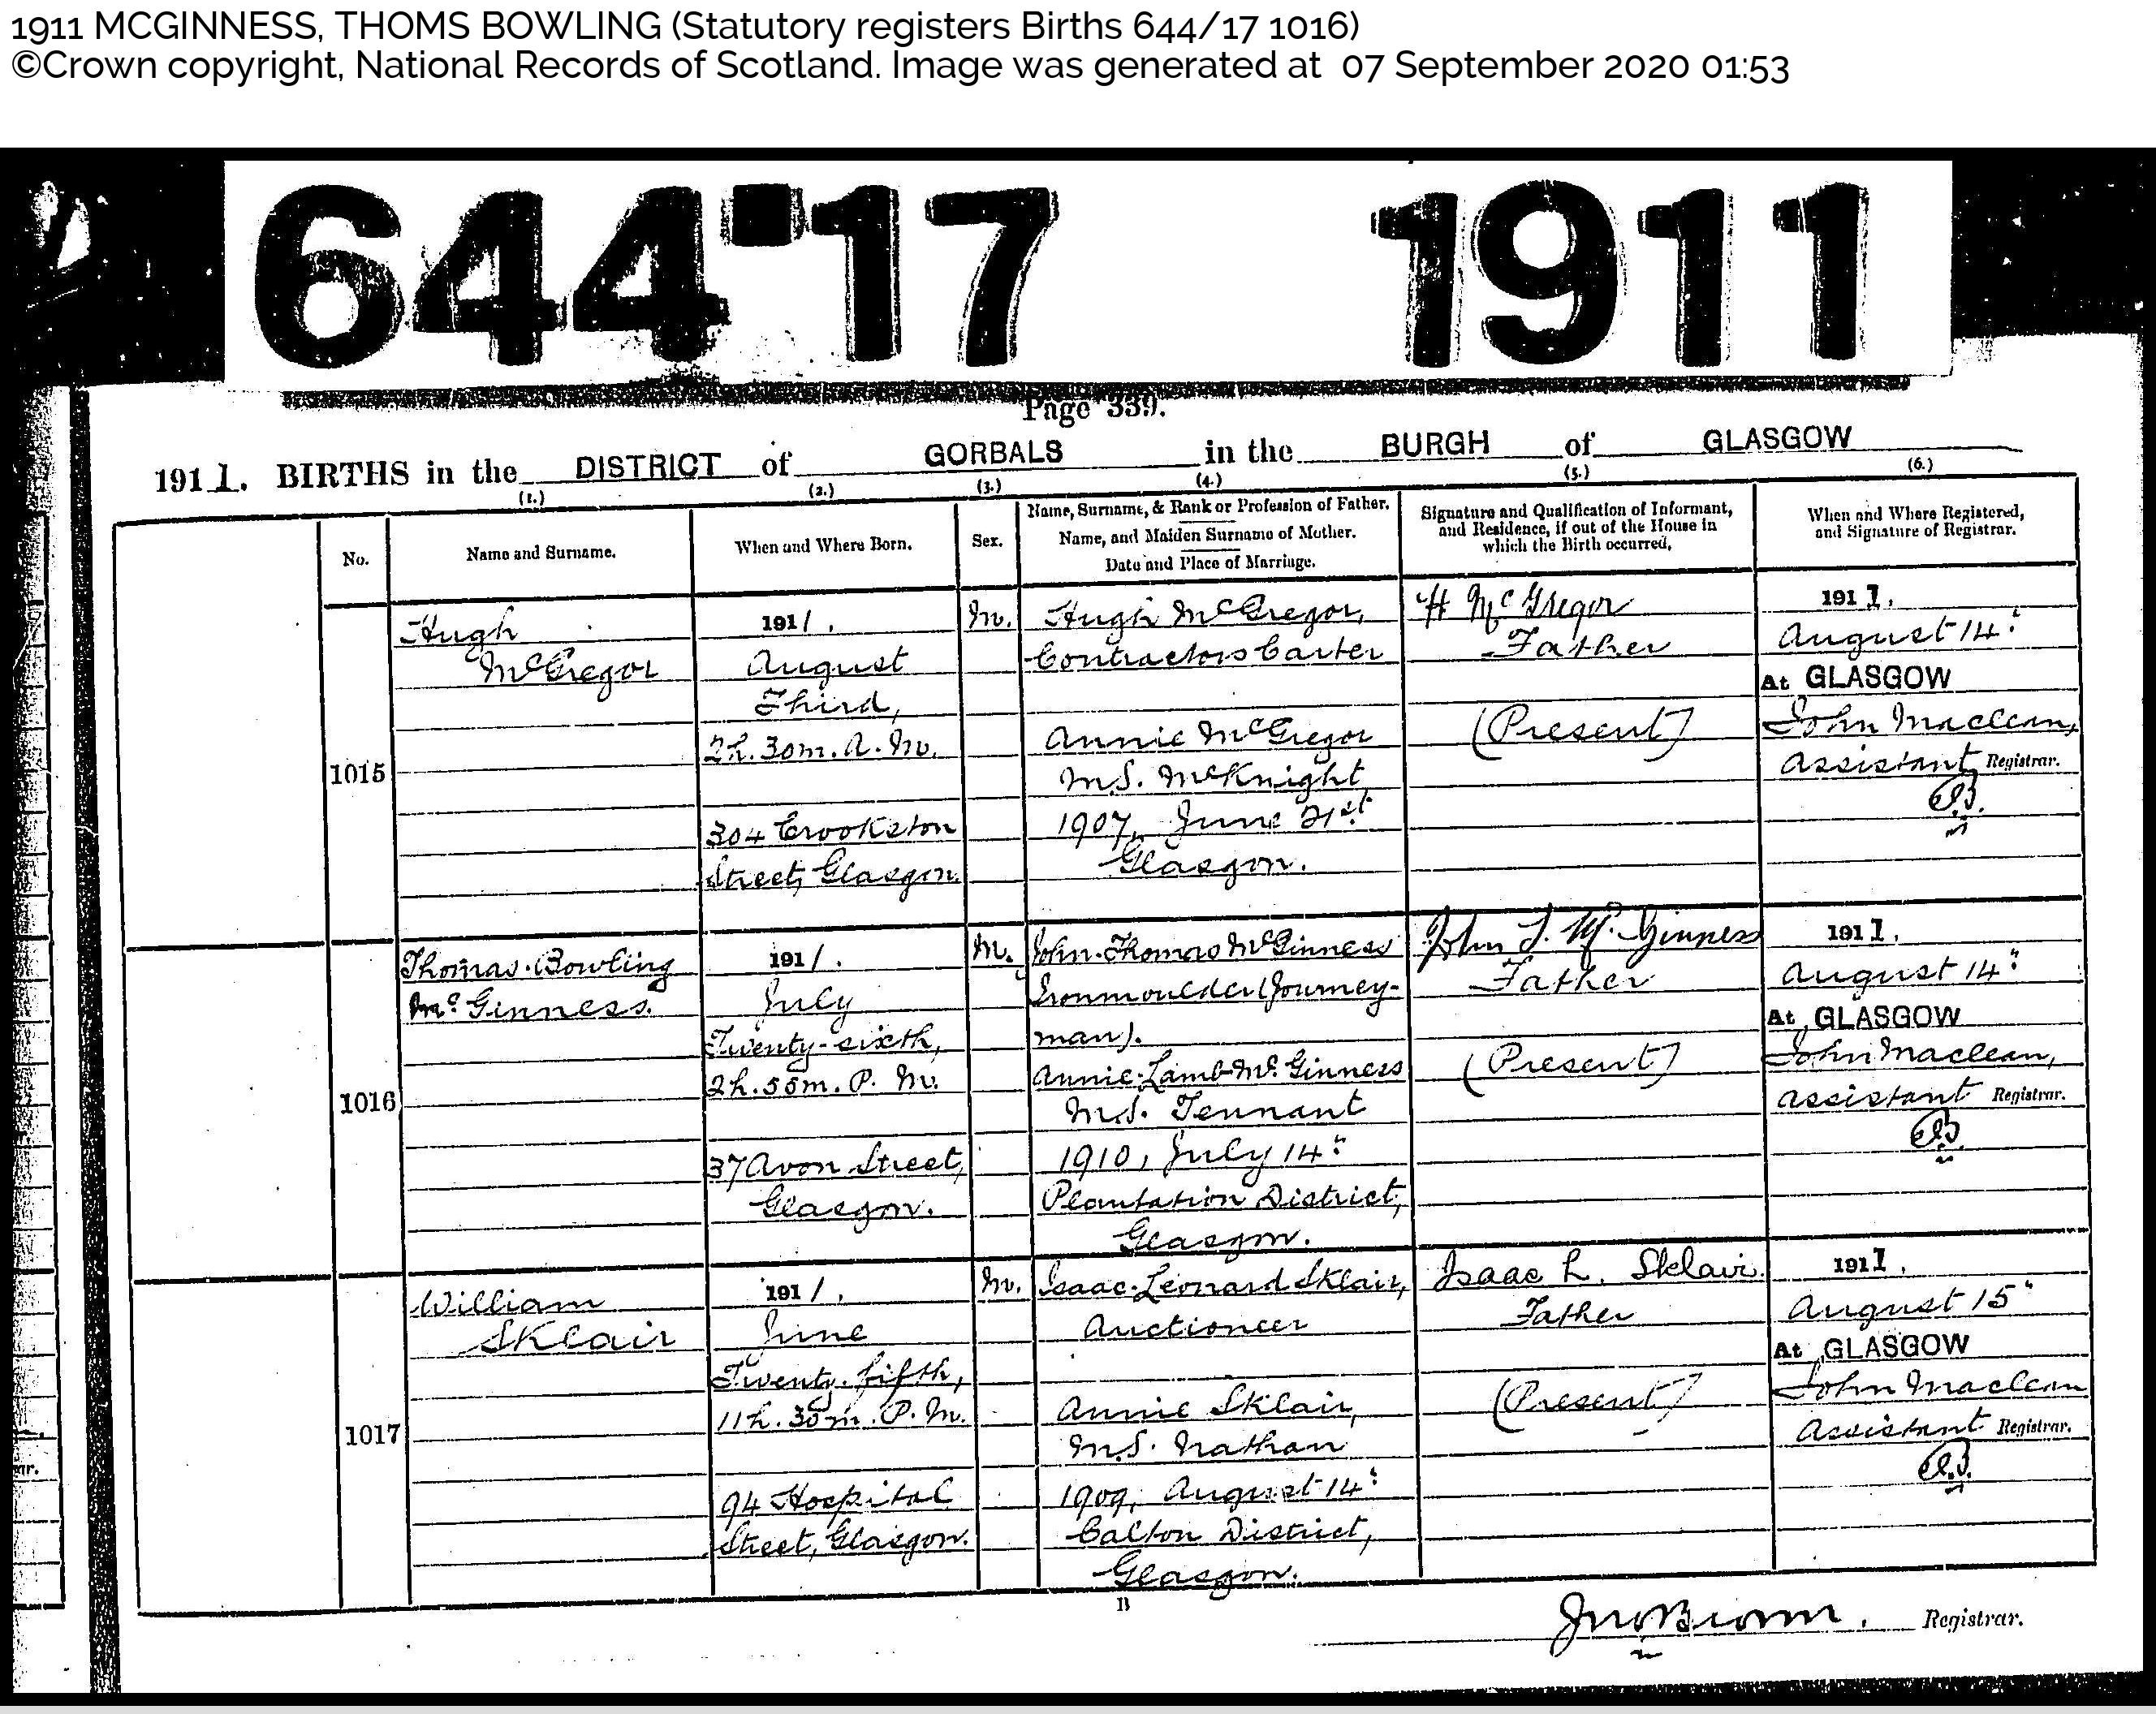 1911 MCGINNESS, THOMS BOWLING (Statutory registers Births 644/17 1016)
©Crown copyright, National Records of Scotland. Image was generated at 07 September 2020 01:53
644 17 1911
Page 339.
1911. BIRTHS in the DISTRICT of GORBALS in the BURGH of GLASGOW
(1.) (2.) (3.) (4.) (5.) (6.)
No.
Name and Surname.
When and Where Born.
Sex.
Name, Surname, & Rank or Profession of Father.
Name, and Maiden Surname of Mother.
Date and Place of Marriage.
Signature and Qualification of Informant,
and Residence, if out of the House in
which the Birth occurred,
When and Where Registered,
and Signature of Registrar.
1015
Hugh
McGregor
1911.
August
Third,
2h. 30m. A. M.
304 Crookston
Street, Glasgow.
M.
Hugh McGregor,
Contractors Carter
Annie McGregor
M.S. McKnight
1907, June 21st
Glasgow.
H McGregor
Father
(Present)
1911.
August 14"
At GLASGOW
John Maclean,
Assistant Registrar.
1016
Thomas Bowling
McGinness.
1911.
July
Twenty-sixth,
2h. 55m. P. M.
37 Avon Street,
Glasgow.
M.
John Thomas McGinness
Ironmoulder (Journey-
man).
Annie Lamb McGinness
M.S. Tennant
1910, July 14"
Plantation District,
Glasgow.
John T. McGinness
Father
(Present)
1911.
August 14"
At GLASGOW
John Maclean,
Assistant Registrar.
1017
William
Sklair
1911.
June
Twenty-fifth,
11h. 30m. P. M.
94 Hospital
Street, Glasgow.
M.
Isaac Leonard Sklair,
Auctioneer
Annie Sklair,
M.S. Nathan
1909, August 14"
Calton District,
Glasgow.
Isaac L. Sklair.
Father
(Present)
1911.
August 15"
At GLASGOW
John Maclean
Assistant Registrar.
B
Jno Brown. Registrar.